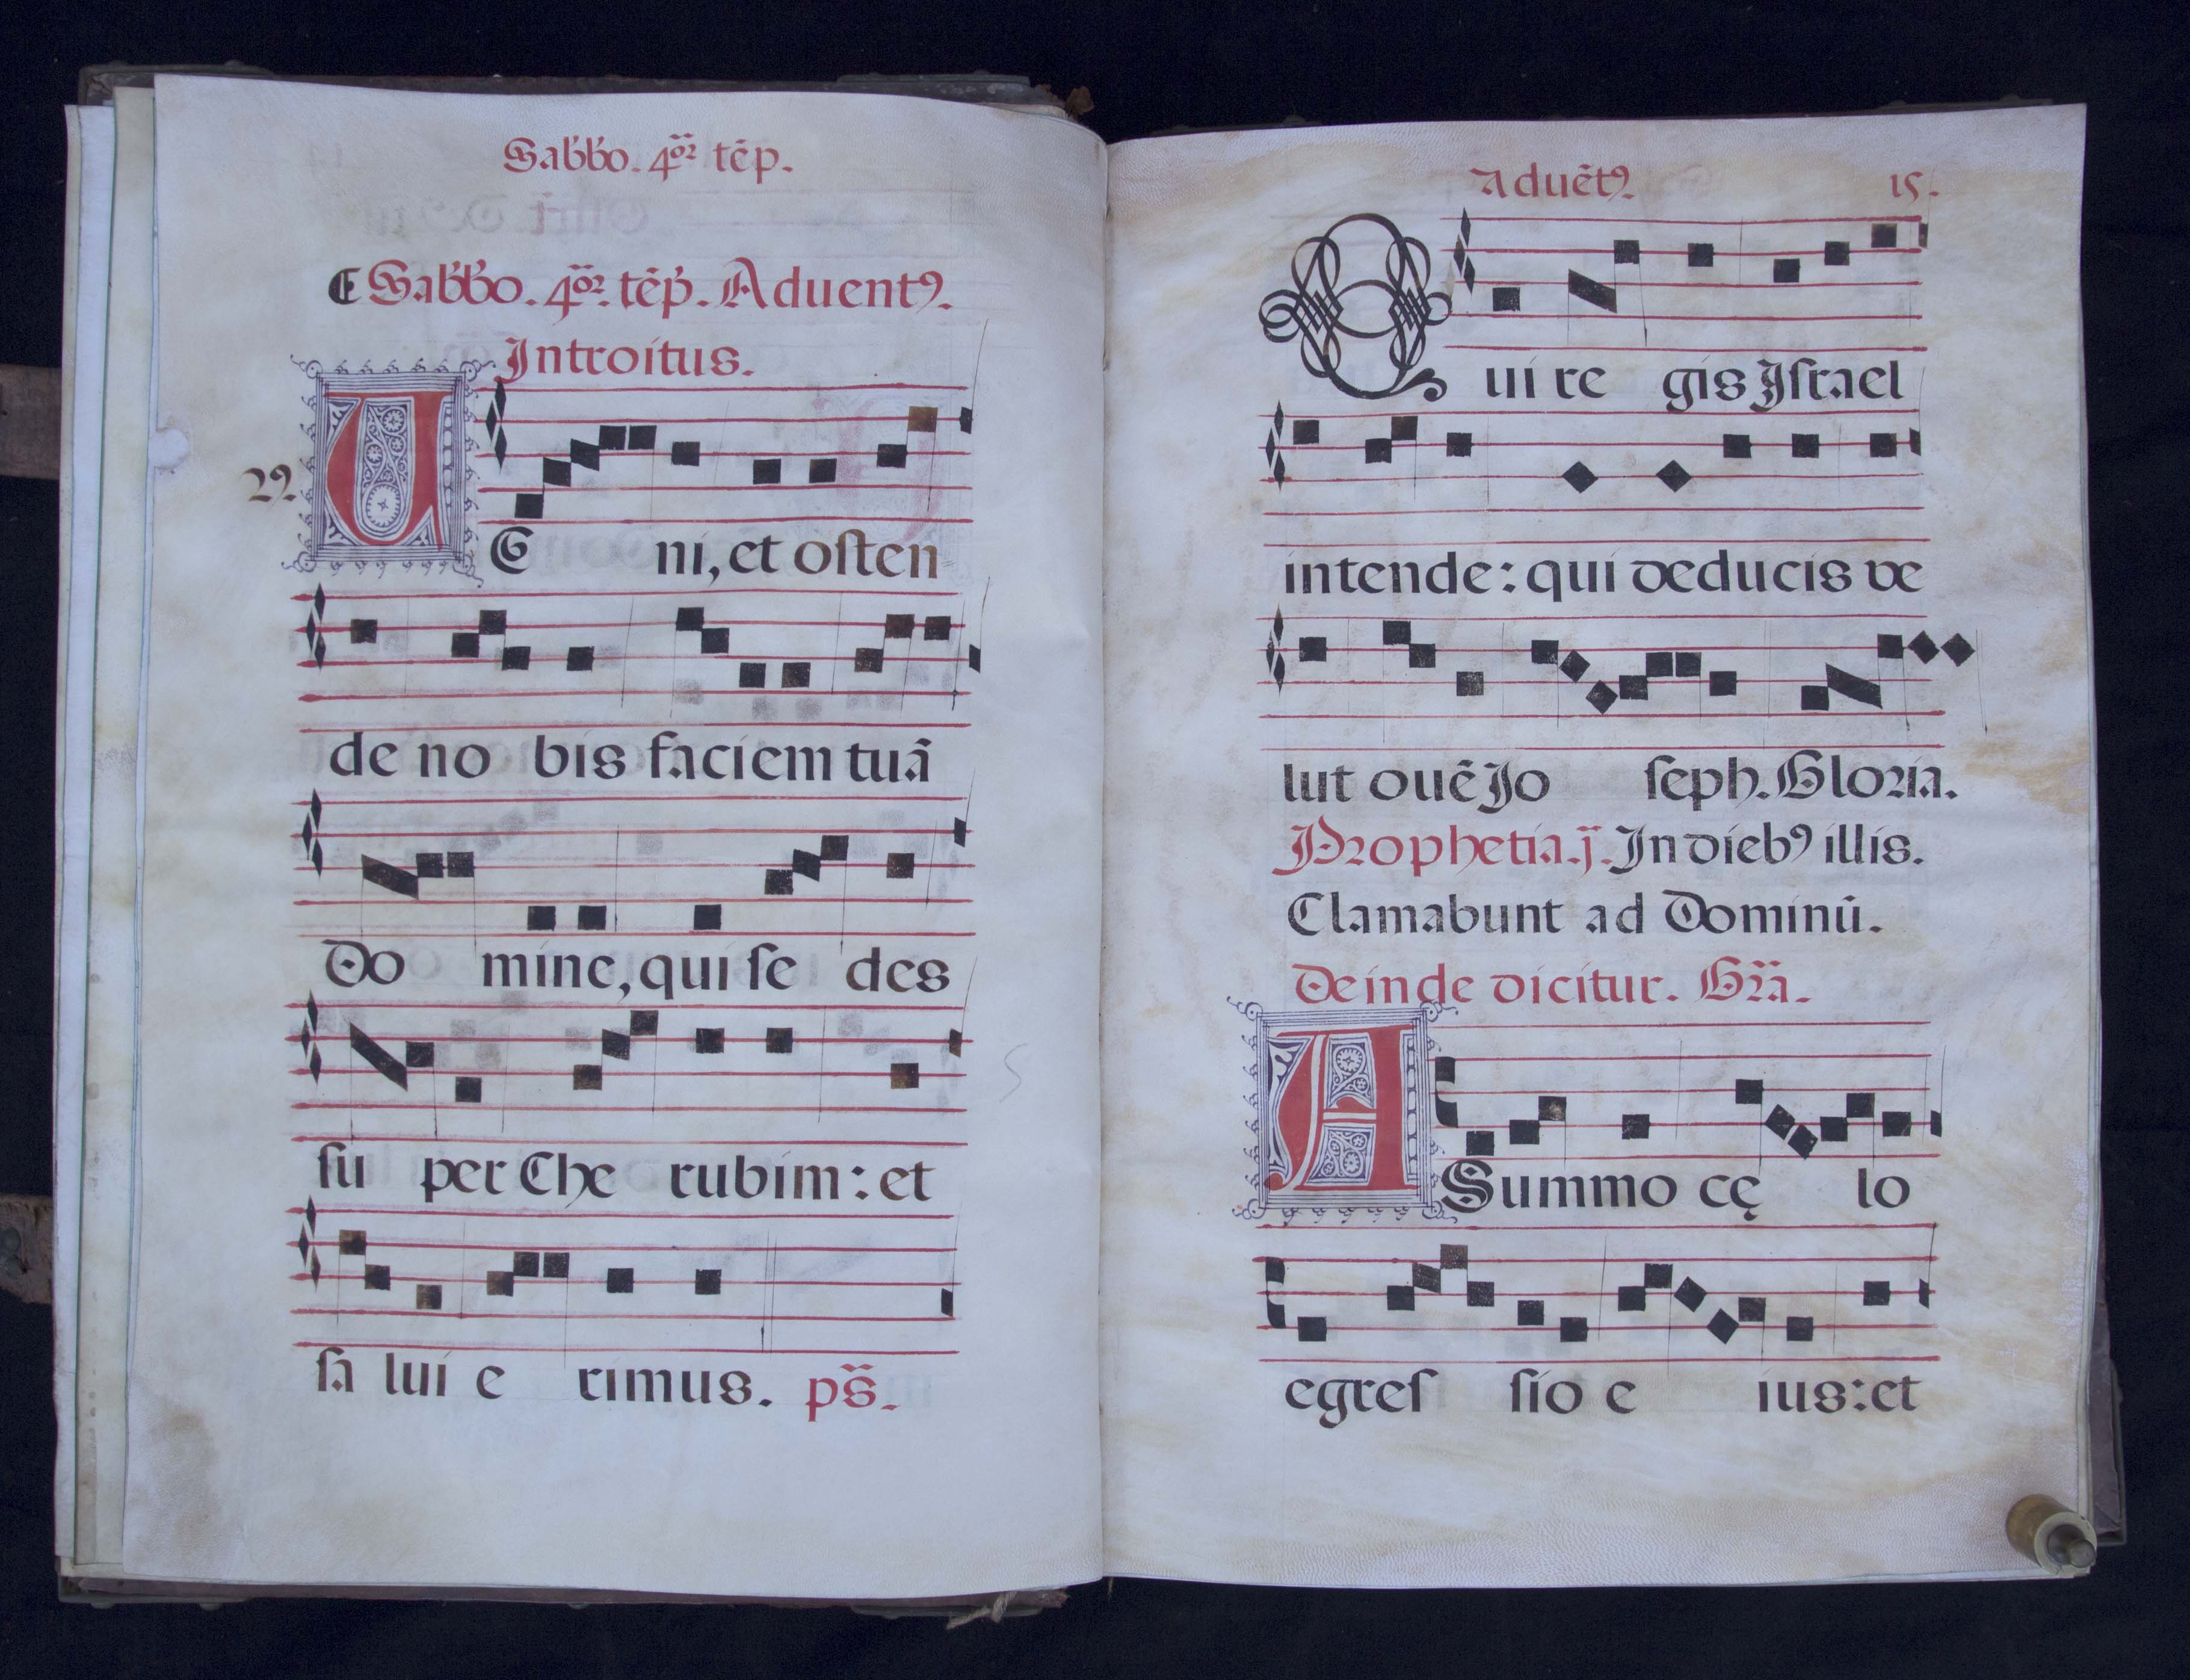 Sab̃b̃o. 4ºʳ tẽp.
Sab̃b̃o. 4ºʳ. tẽp̃. Aduentꝰ.
Introitus.
29.
UE ni, et oſten
de no bis faciem tuã
Do mine, qui ſe des
ſu per Che rubim: et
ſa lui e rimus. ps̃.
Aduẽtꝰ. 15.
Qui re gis Iſrael
intende: qui deducis ve
lut ouẽ Jo ſeph. Gloria.
Prophetia. j. In diebꝰ illis.
Clamabunt ad Dominũ.
Deinde dicitur. Gr̃a.
A Summo cę lo
egreſ ſio e ius: et